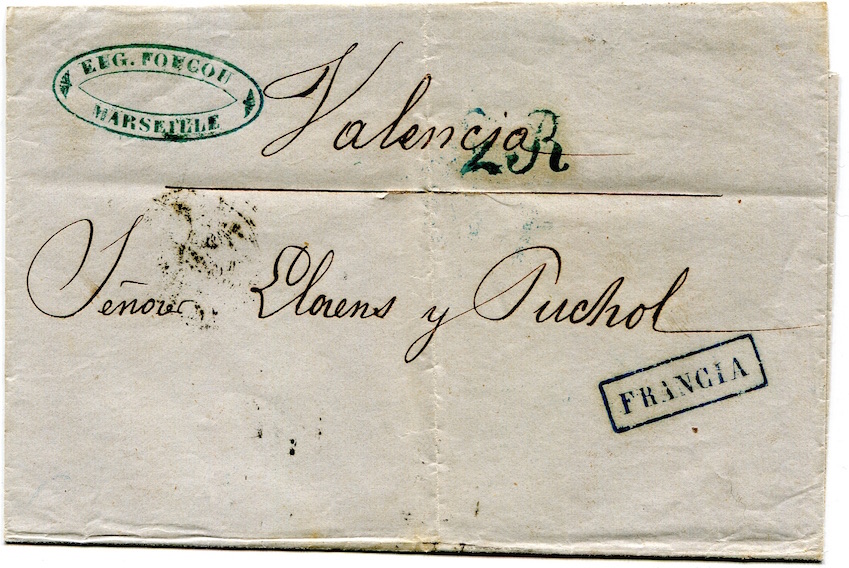 EUG. FOUCOU
MARSEILLE
Valencia
2R
Señores Llorens y Puchol
FRANCIA